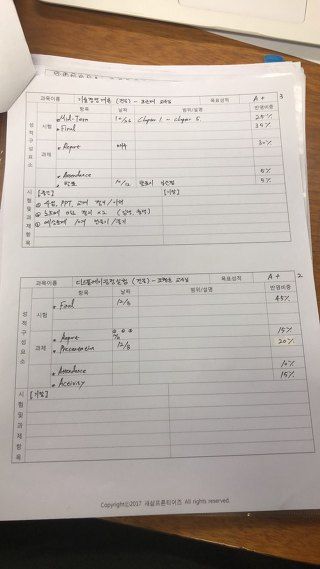 과목이름 기술경영개론 (전공) - 교수님 목표성적 A+ 3
항목 날짜 범위/설명 반영비중
성적구성요소
시험 Mid-Term 10/26 Chapter 1 ~ Chapter 5 25%
Final 35%
과제 Report 매주 30%
Attendance 5%
발표 10/12 5%
시험및과제항목
[중간] [기말]
① 수업, PPT, 교재 정독/이해
② 노트에 정리 ×2
③ 예상문제 10개 만들기/풀기
과목이름 디스플레이공정실험 (전공) - 교수님 목표성적 A+ 2
항목 날짜 범위/설명 반영비중
성적구성요소
시험 Final 12/ 45%
과제 Report 15%
Presentation 12/8 20%
Attendance 10%
Activity 15%
시험및과제항목
[기말]
Copyrightⓒ2017 새삶프론티어즈 All rights reserved.